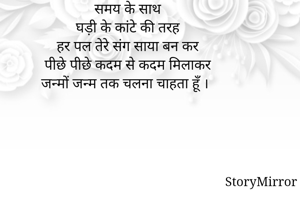 समय के साथ
घड़ी के कांटे की तरह
हर पल तेरे संग साया बन कर
पीछे पीछे कदम से कदम मिलाकर
जन्मों जन्म तक चलना चाहता हूँ ।
StoryMirror